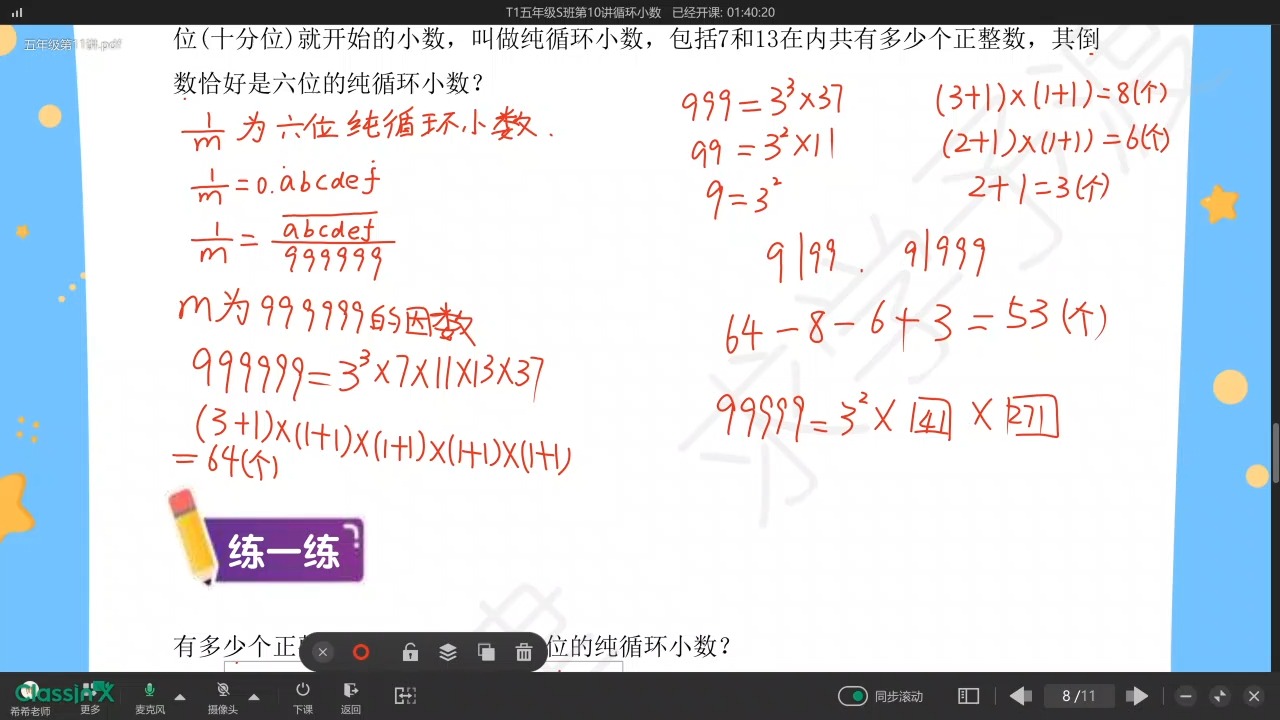 T1五年级S班第10讲循环小数 已经开课: 01:40:20
五年级第11讲.pdf
位(十分位)就开始的小数，叫做纯循环小数，包括7和13在内共有多少个正整数，其倒
数恰好是六位的纯循环小数？
1/m 为六位纯循环小数.
1/m = 0.ȧbcdeḟ
1/m = abcdef/999999
m为999999的因数
999999=3³×7×11×13×37
(3+1)×(1+1)×(1+1)×(1+1)×(1+1)
=64(个)
999=3³×37 (3+1)×(1+1)=8(个)
99=3²×11 (2+1)×(1+1)=6(个)
9=3² 2+1=3(个)
9|99. 9|999
64-8-6+3=53(个)
99999=3²×41×271
练一练
有多少个正
位的纯循环小数？
ClassIn X
希希老师
更多
麦克风
摄像头
下课
返回
同步滚动
8/11